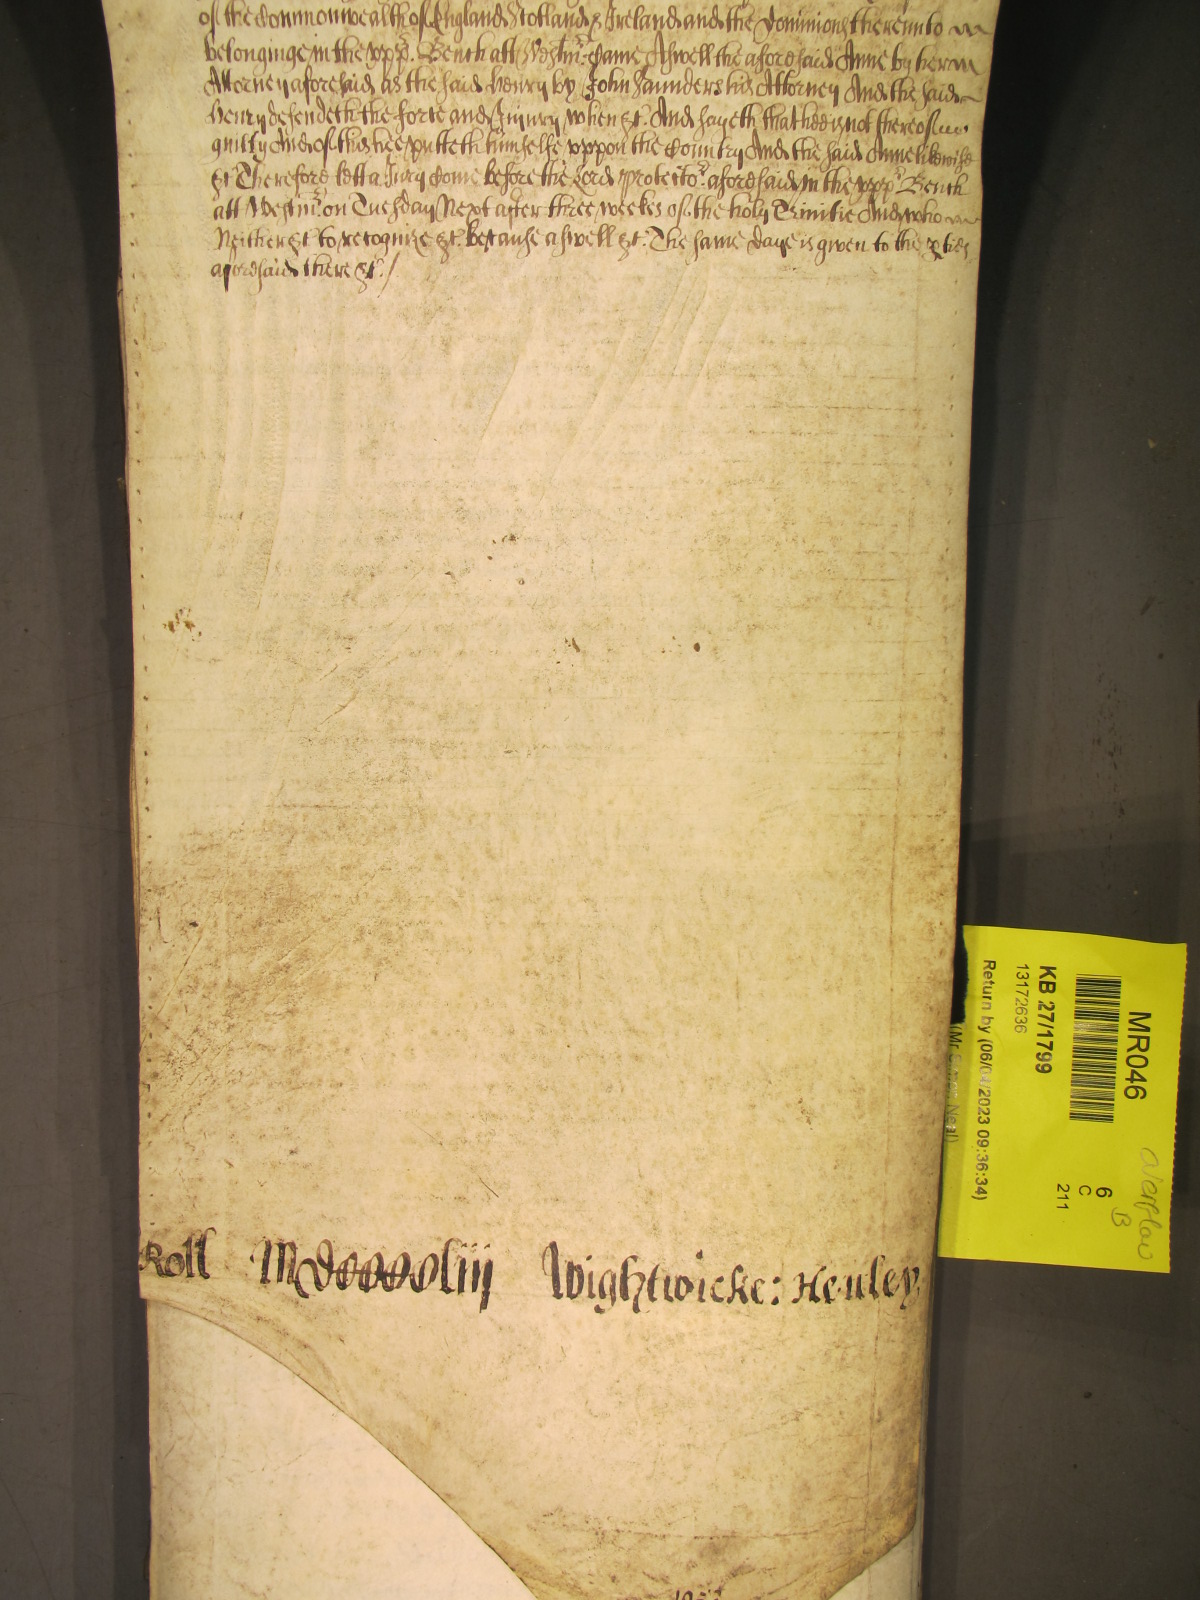 of the Commonwealth of England Scotland & Ireland and the Dominions thereunto
belonginge in the vpp. Bench att Westm: Came Aswell the aforesaid Anne by her
Attorney aforesaid as the said Henry by John Saunders his Attorney And the said
Henry defendeth the force and Iniury when &c. And sayeth that hee is not thereof
guilty And of this hee putteth himselfe vppon the Country And the said Anne likewise
&c Therefore lett a Iury Come before the Lord Protector aforesaid in the vpp Bench
att Westm: on Tuesday Next after three weekes of the holy Trinitie And who
Neither &c to recognize &c. because aswell &c. The same daye is given to the pties
aforesaid there &c./
Roll Wightwicke: Henley
MR046
KB 27/1799
13172636
Return by (06/04/2023 09:36:34)
6
C
211
overflow
B